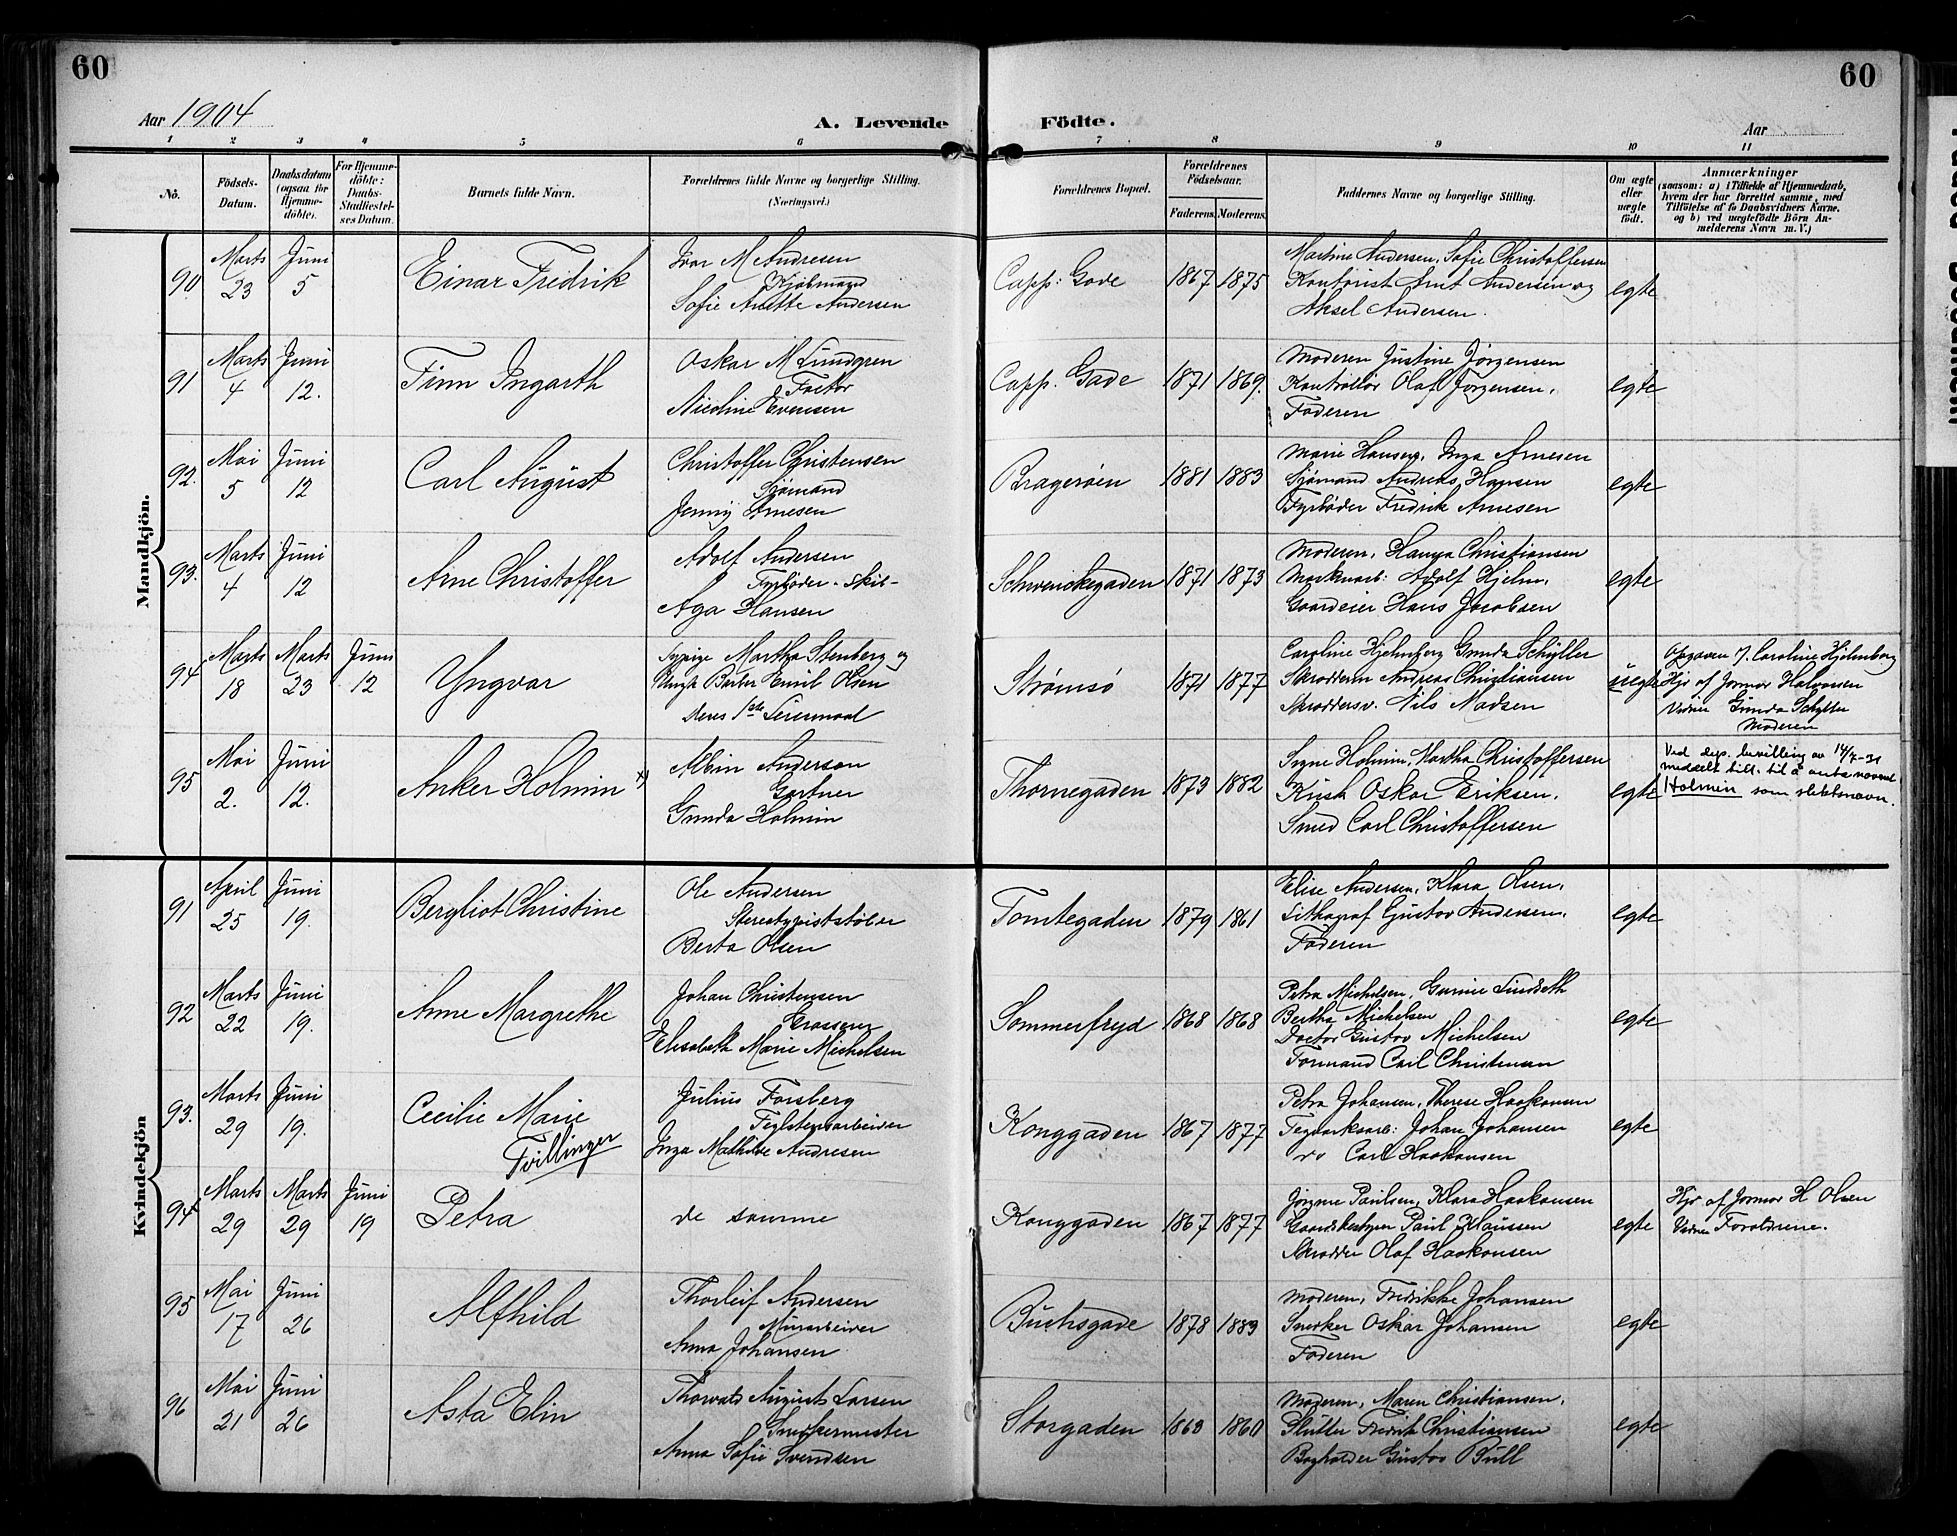 60
60
Aar 1904
A. Levende Födte.
Aar
1 2 3 4 5 6 7 8 9 10 11
No.
Födsels-Datum.
Daabsdatum (ogsaa for Hjemmedöbte).
For Hjemmedöbte: Daabs-Stadfæstelses Datum.
Barnets fulde Navn.
Forældrenes fulde Navne og borgerlige Stilling.
(Næringsvei.)
Forældrenes Bopæl.
Forældrenes Födselsaar.
Faderens. Moderens.
Faddernes Navne og borgerlige Stilling.
Om ægte eller uægte födt.
Anmærkninger
(saasom: a) i Tilfælde af Hjemmedaab,
hvem der har forrettet samme, med
Tilföielse af to Daabsvidners Navne.
og b) ved uægtefödte Börn An-
melderens Navn m. V.)
Mandkjön.
90 Marts 23 Juni 5 Einar Fredrik
Ivar M Andresen
Kjøbmand
Sofie Anette Andersen
Capp: Gade 1867 1875
Martine Andersen, Sofie Christoffersen
Kontorist Arnt Andersen og
Aksel Andersen.
egte
91 Marts 4 Juni 12. Finn Ingarth
Oskar M Lundgren
Factor
Nicoline Evensen
Capp. Gade 1871 1869.
Moderen Justine Jørgensen
Kontrollør Olaf Jørgensen,
Faderen
egte
92. Mai 5 Juni 12 Carl August
Christoffer Christensen
Sjømand
Jenny Arnesen
Bragerøen 1881 1883
Marie Hansen, Inga Arnesen
Sjømand Andreas Hansen
Fyrbøder Fredrik Arnesen
egte
93. Marts 4 Juni 12 Arne Christoffer
Adolf Andersen
Fyrbøder - Skib-
Aga Hansen
Schwenckegaden 1871 1873
Moderen, Hanna Christiansen
Adolf Hjelm,
Gaardeier Hans Jacobsen
egte
94 Marts 18 Marts 23 Juni 12 Yngvar
Sypige Martha Stenberg og
Ungk Barber Emil Olsen
deres 1ste Leiermaal
Strømsø 1871 1877
Caroline Hjelmborg Gunda Schylter
Skrædderen Andreas Christiansen
Skræddersv. Nils Madsen
uegte
Opgaven J. Caroline Hjelmborg
Hjd af Jormor Halvorsen
Vidner Gunda Schylter
Moderen
95 Mai 2. Juni 12. Anker Holmin x)
Albin Anderson
Gartner
Gunda Holmin
Thornegaden 1873 1882
Signe Holmin, Martha Christoffersen
Kusk Oskar Eriksen,
Smed Carl Christoffersen
egte
Ved dep. bevilling av 14/7-31
meddelt till. til å anta navnet
Holmen som slektsnavn.
Kvindekjön
91 April 25 Juni 19. Bergliot Christine
Ole Andersen
Stereotypiststøber
Berta Olsen
Tomtegaden 1879 1861
Elise Andersen, Klara Olsen,
Lithograf Gustav Andersen,
Faderen
egte
92 Marts 22 Juni 19. Anne Margrethe
Johan Christensen
Grosserer
Elisabeth Marie Michelsen
Sommerfryd 1868 1868
Petra Michelsen, Gunnie Lindseth
Bertha Michelsen
Factor Gustav Michelsen
Formand Carl Christensen
egte
93. Marts 29 Juni 19. Cecilie Marie
Tvillinger
Julius Forsberg
Teglstensarbeider
Inga Mathilde Andresen
Konggaden 1867 1877
Petra Johansen, Therese Haakonsen
Teglverksarb: Johan Johansen
do Carl Haakonsen
egte
94 Marts 29 Marts 29 Juni 19 Petra
de samme
Konggaden 1867 1877
Jørgine Paulsen, Klara Haakonsen
Gaardsbestyrer Paul Klausen
Skrædder Olaf Haakonsen
egte
Hjd af Jormor H Olsen
Vidner Forældrene.
95 Mai 17 Juni 26 Alfhild
Thorleif Andersen
Murarbeider
Anna Johansen
Buchsgade 1878 1883
Moderen, Fredrikke Johansen
Snedker Oskar Johansen
Faderen
egte
96 Mai 21 Juni 26 Asta Elin
Thorvald August Larsen
Snedkermester
Anna Sofie Svendsen
Storgaden 1863 1860
Moderen, Maren Christiansen,
Slutter Fredrik Christiansen
Bogholder Gustav Bull
egte